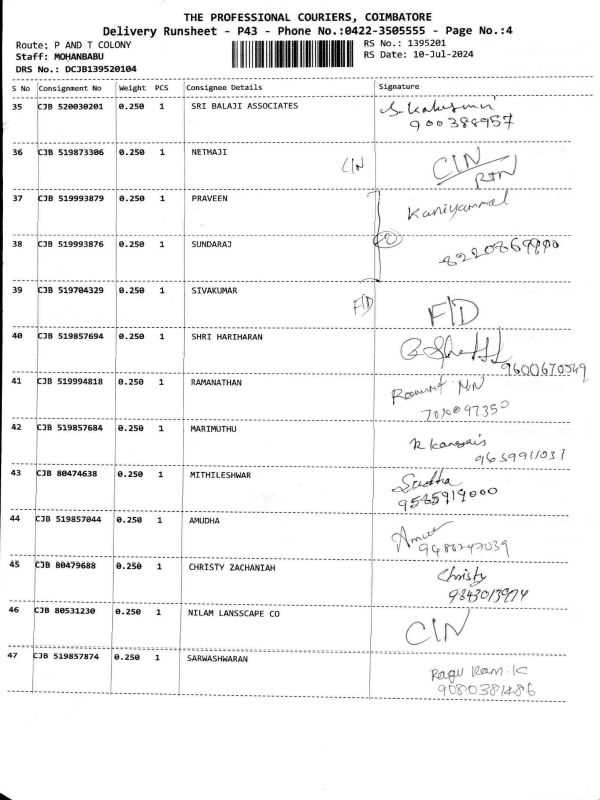 THE PROFESSIONAL COURIERS, COIMBATORE
Delivery Runsheet - P43 - Phone No.:0422-3505555 - Page No.:4
Route: P AND T COLONY
Staff: MOHANBABU
DRS No.: DCJB139520104
RS No.: 1395201
RS Date: 10-Jul-2024
S No Consignment No Weight PCS Consignee Details Signature
35 CJB 520030201 0.250 1 SRI BALAJI ASSOCIATES
900388957
36 CJB 519873306 0.250 1 NETMAJI CIN CIN
RTN
37 CJB 519993879 0.250 1 PRAVEEN Kaniyammal
38 CJB 519993876 0.250 1 SUNDARAJ
39 CJB 519704329 0.250 1 SIVAKUMAR F/D F/D
40 CJB 519857694 0.250 1 SHRI HARIHARAN
9600670549
41 CJB 519994818 0.250 1 RAMANATHAN
7010097350
42 CJB 519857684 0.250 1 MARIMUTHU
9659911037
43 CJB 80474638 0.250 1 MITHILESHWAR Sudha
9585919000
44 CJB 519857044 0.250 1 AMUDHA
9486247039
45 CJB 80479688 0.250 1 CHRISTY ZACHANIAH Christy
9843013974
46 CJB 80531230 0.250 1 NILAM LANSSCAPE CO CIN
47 CJB 519857874 0.250 1 SARWASHWARAN Ragu Ram.K
9080381486